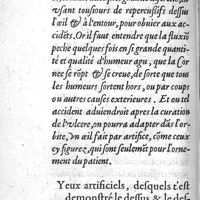 vsant tousiours de repercussifs dessus
l'œil & à l'entour, pour obuier aux ac-
cidẽts. Or il faut entendre que la fluxiõ
peche quelquefois en si grande quanti-
té et qualité d'humeur agu, que la Cor-
nee se rõpt & se creue, de sorte que tous
les humeurs sortent hors, ou par coups
ou autres causes exterieures. Et ou tel
accident aduiendroit apres la curation
de l'vlcere, on pourra adapter dãs l'or-
bite, vn œil fait par artifice, cõme ceux
cy figurez, qui sont seulemẽt pour l'orne-
ment du patient.
Yeux artificiels, desquels t'est
demonstré le dessus & le des-